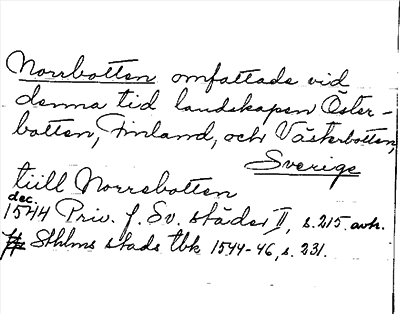 Norrbotten omfattade vid
denna tid landskapen Öster-
botten, Finland, och Västerbotten,
Sverige
tiill Norrebotten
dec.
1544 Priv. f. Sv. städer II, s. 215. avh.
Sthlms stads tbk 1544-46, s. 231.